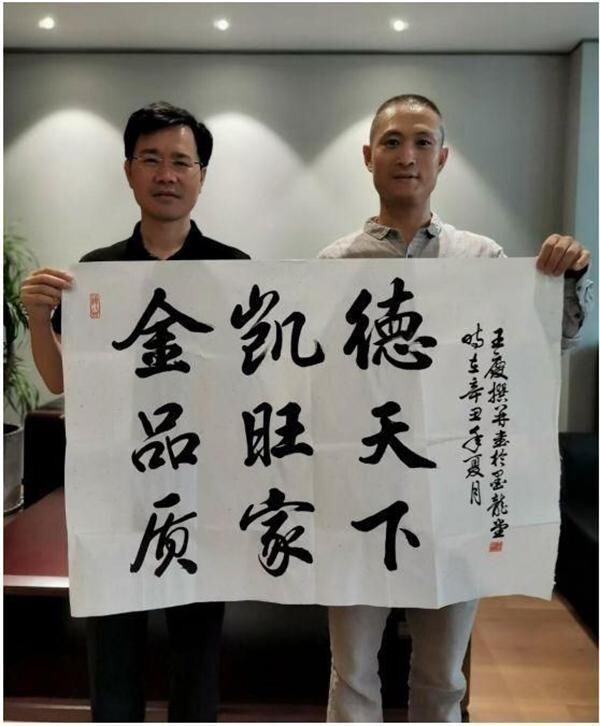 金品质
凯旺家
德天下
時在辛丑年夏月
王慶撰并書於墨龍堂